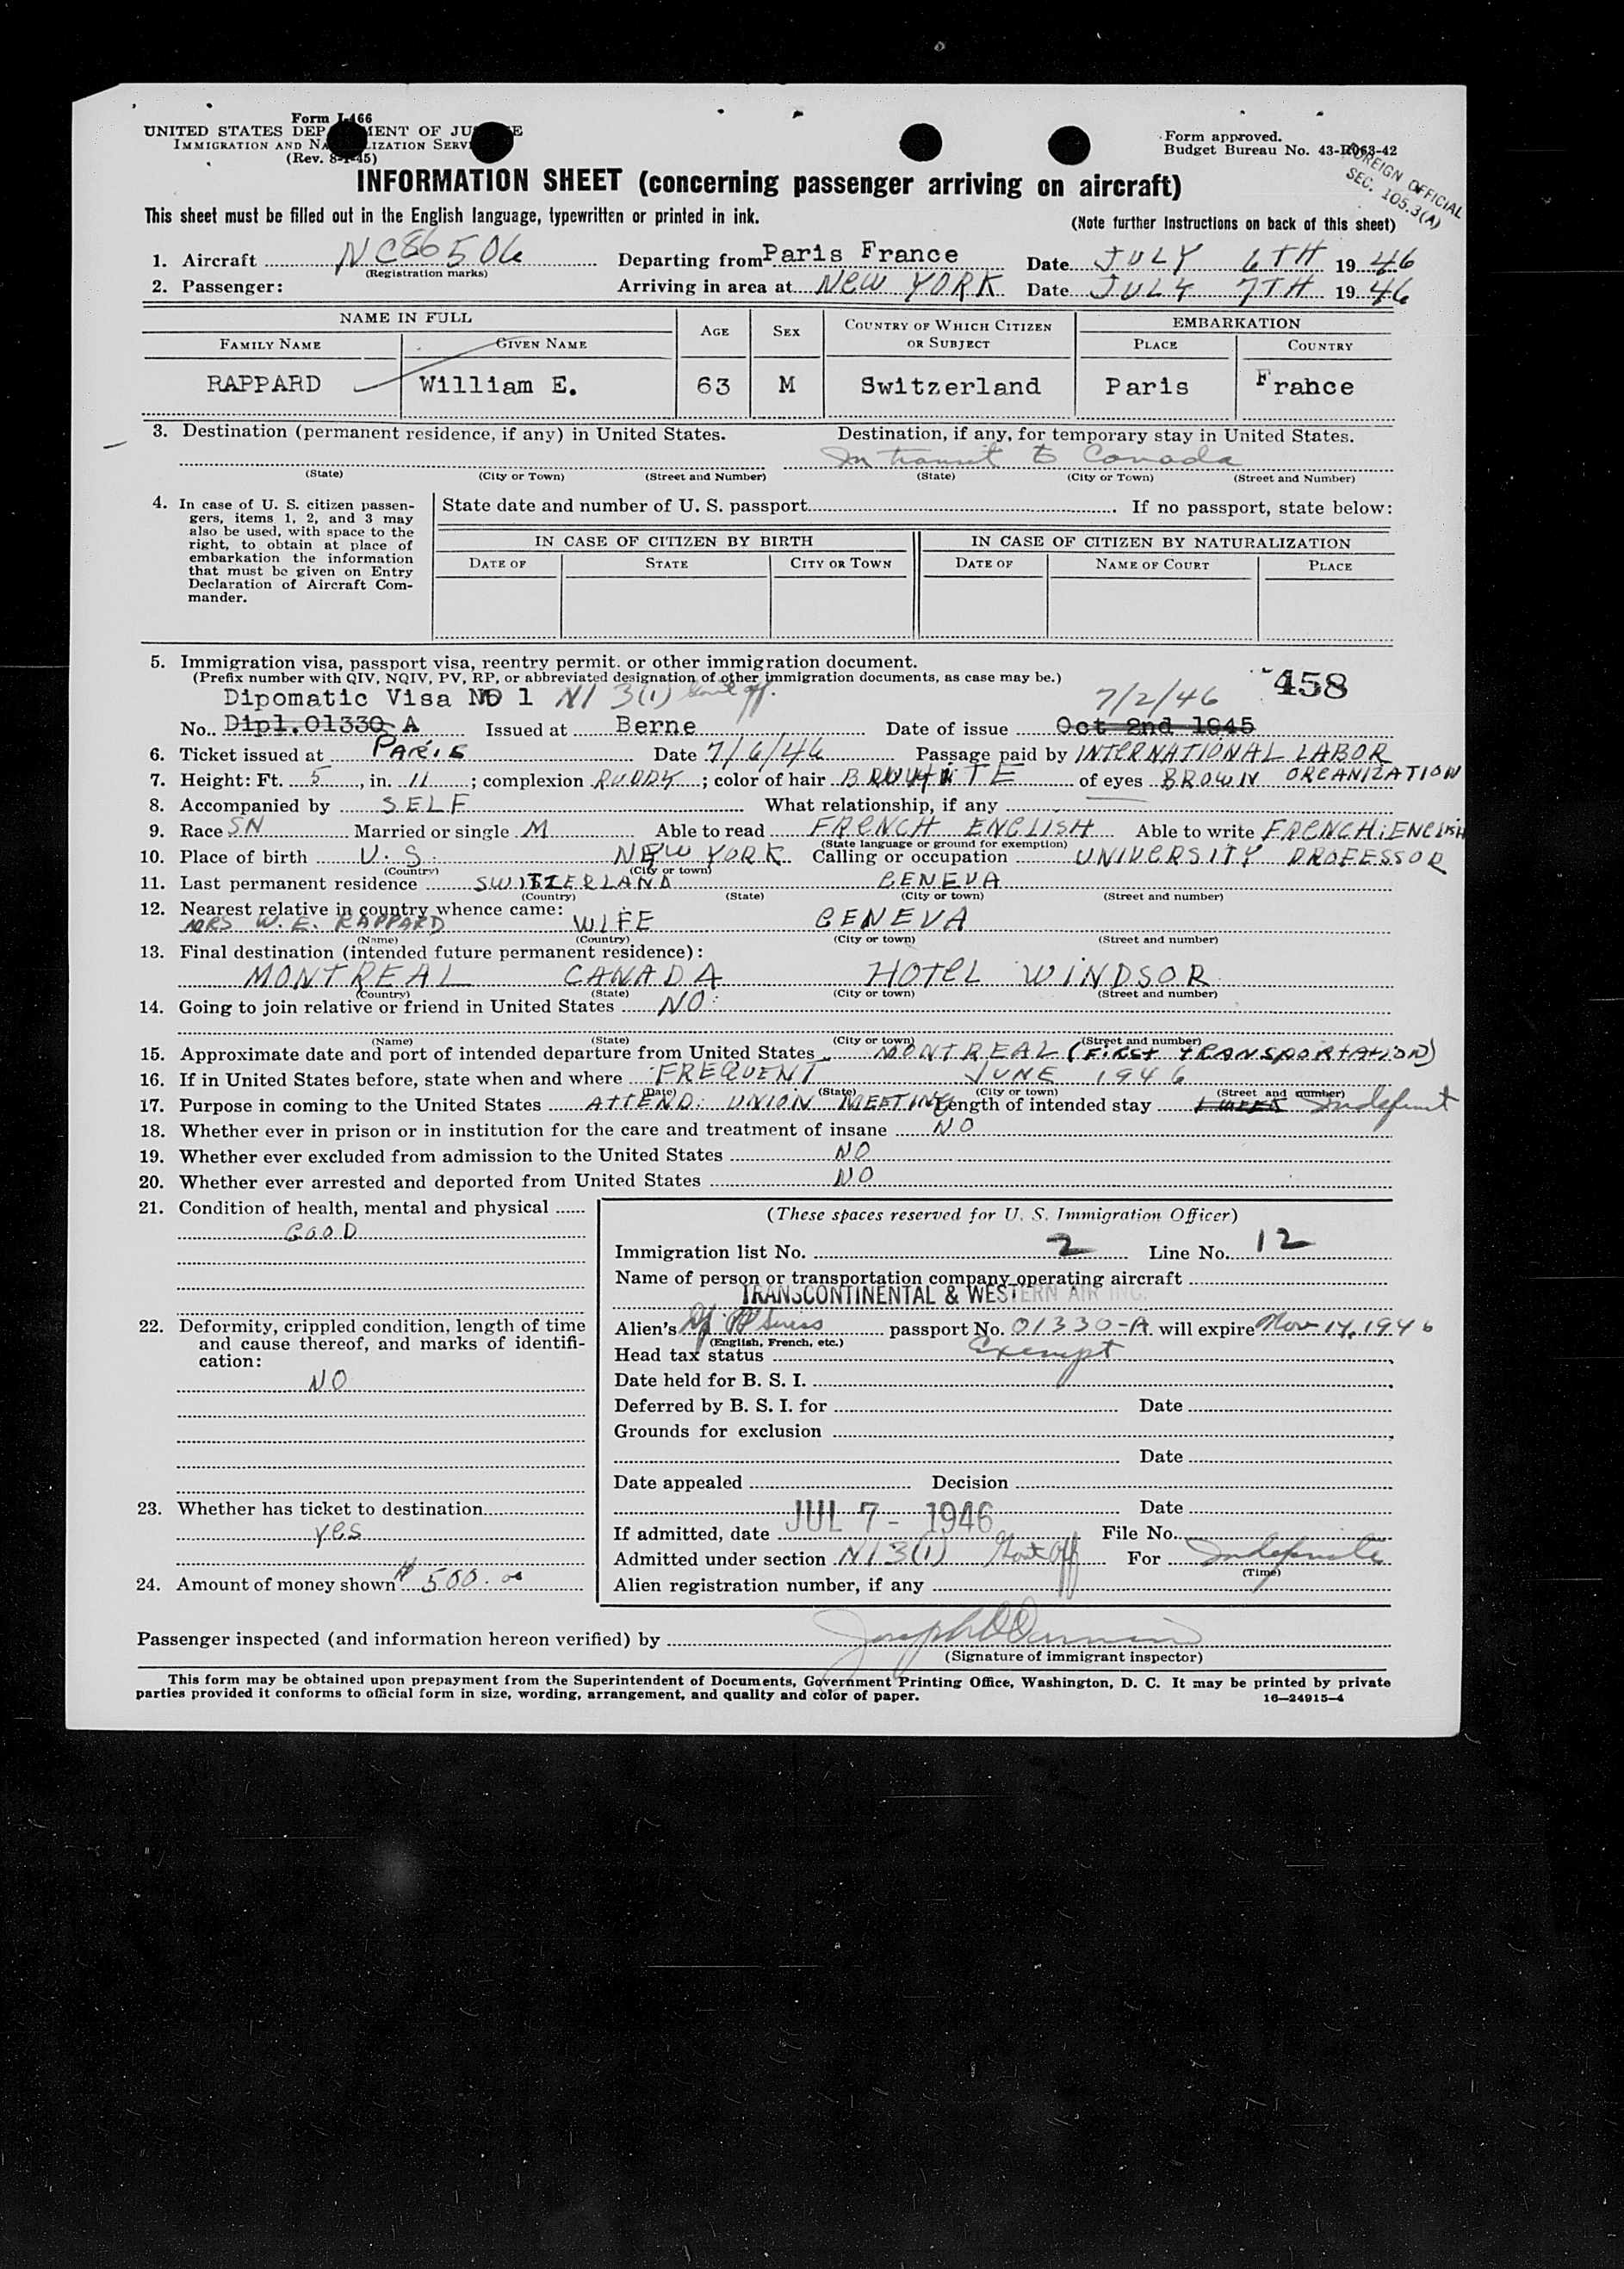 Form I-466
UNITED STATES DEPARTMENT OF JUSTICE
IMMIGRATION AND NATURALIZATION SERVICE
(Rev. 8-1-45)
Form approved.
Budget Bureau No. 43-R063-42
FOREIGN OFFICIAL
SEC. 105.3(A)
INFORMATION SHEET (concerning passenger arriving on aircraft)
This sheet must be filled out in the English language, typewritten or printed in ink. (Note further Instructions on back of this sheet)
1. Aircraft NC86506 Departing from Paris France Date JULY 6TH 1946
(Registration marks)
2. Passenger: Arriving in area at NEW YORK Date JULY 7TH 1946
NAME IN FULL AGE SEX COUNTRY OF WHICH CITIZEN OR SUBJECT EMBARKATION
FAMILY NAME GIVEN NAME PLACE COUNTRY
RAPPARD William E. 63 M Switzerland Paris France
3. Destination (permanent residence, if any) in United States. Destination, if any, for temporary stay in United States.
In transit to Canada
(State) (City or Town) (Street and Number) (State) (City or Town) (Street and Number)
4. In case of U. S. citizen passengers, items 1, 2, and 3 may also be used, with space to the right, to obtain at place of embarkation the information that must be given on Entry Declaration of Aircraft Commander.
State date and number of U. S. passport If no passport, state below:
IN CASE OF CITIZEN BY BIRTH IN CASE OF CITIZEN BY NATURALIZATION
DATE OF STATE CITY OR TOWN DATE OF NAME OF COURT PLACE
5. Immigration visa, passport visa, reentry permit. or other immigration document.
(Prefix number with QIV, NQIV, PV, RP, or abbreviated designation of other immigration documents, as case may be.)
458
Dipomatic Visa NO 1 NI 3(1) Govt off. 7/2/46
No. Dipl.01330 A Issued at Berne Date of issue Oct 2nd 1945
6. Ticket issued at PARIS Date 7/6/46 Passage paid by INTERNATIONAL LABOR ORGANIZATION
7. Height: Ft. 5, in. 11; complexion RUDDY; color of hair of eyes BROWN
8. Accompanied by SELF What relationship, if any
9. Race SN Married or single M Able to read FRENCH ENGLISH Able to write FRENCH: ENGLISH
(State language or ground for exemption)
10. Place of birth U.S. NEW YORK Calling or occupation UNIVERSITY PROFESSOR
(Country) (City or town)
11. Last permanent residence SWITZERLAND GENEVA
(Country) (State) (City or town) (Street and number)
12. Nearest relative in country whence came:
MRS W. E. RAPPARD WIFE GENEVA
(Name) (Country) (City or town) (Street and number)
13. Final destination (intended future permanent residence):
MONTREAL CANADA HOTEL WINDSOR
(Country) (State) (City or town) (Street and number)
14. Going to join relative or friend in United States NO
(Name) (State) (City or town) (Street and number)
15. Approximate date and port of intended departure from United States MONTREAL (FIRST TRANSPORTATION)
16. If in United States before, state when and where FREQUENT JUNE 1946
(Date) (State) (City or town) (Street and number)
17. Purpose in coming to the United States ATTEND: UNION MEETING Length of intended stay 1 WEEK Indefinit
18. Whether ever in prison or in institution for the care and treatment of insane NO
19. Whether ever excluded from admission to the United States NO
20. Whether ever arrested and deported from United States NO
21. Condition of health, mental and physical
GOOD
22. Deformity, crippled condition, length of time and cause thereof, and marks of identification:
NO
23. Whether has ticket to destination
yes
24. Amount of money shown $500.00
(These spaces reserved for U. S. Immigration Officer)
Immigration list No. 2 Line No. 12
Name of person or transportation company operating aircraft
TRANSCONTINENTAL & WESTERN AIR INC.
Alien's Swiss passport No. 01330-A will expire Nov 14, 1946
(English, French, etc.)
Head tax status Exempt
Date held for B. S. I.
Deferred by B. S. I. for Date
Grounds for exclusion
Date
Date appealed Decision
Date
If admitted, date JUL 7 - 1946 File No.
Admitted under section NI 3(1) Govt Off For Indefinite
(Time)
Alien registration number, if any
Passenger inspected (and information hereon verified) by
(Signature of immigrant inspector)
This form may be obtained upon prepayment from the Superintendent of Documents, Government Printing Office, Washington, D. C. It may be printed by private
parties provided it conforms to official form in size, wording, arrangement, and quality and color of paper. 16—24915-4